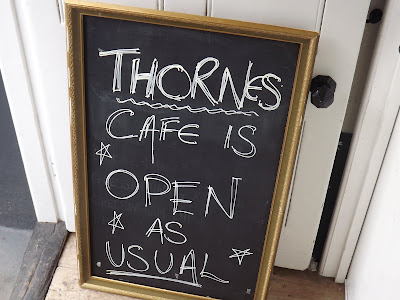 THORNES
CAFE IS
OPEN
AS
USUAL